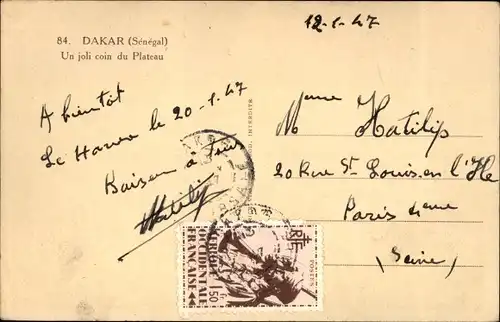 84. DAKAR (Sénégal)
Un joli coin du Plateau
12-1-47
A bientôt
Le Havre le 20-1-47
Baisers à tous
Hatilip
Mme Hatilip
20 Rue St Louis en l'Ile
Paris 4eme
(Seine)
INTERDITE
RF
POSTES
AFRIQUE
OCCIDENTALE
FRANÇAISE
1F50